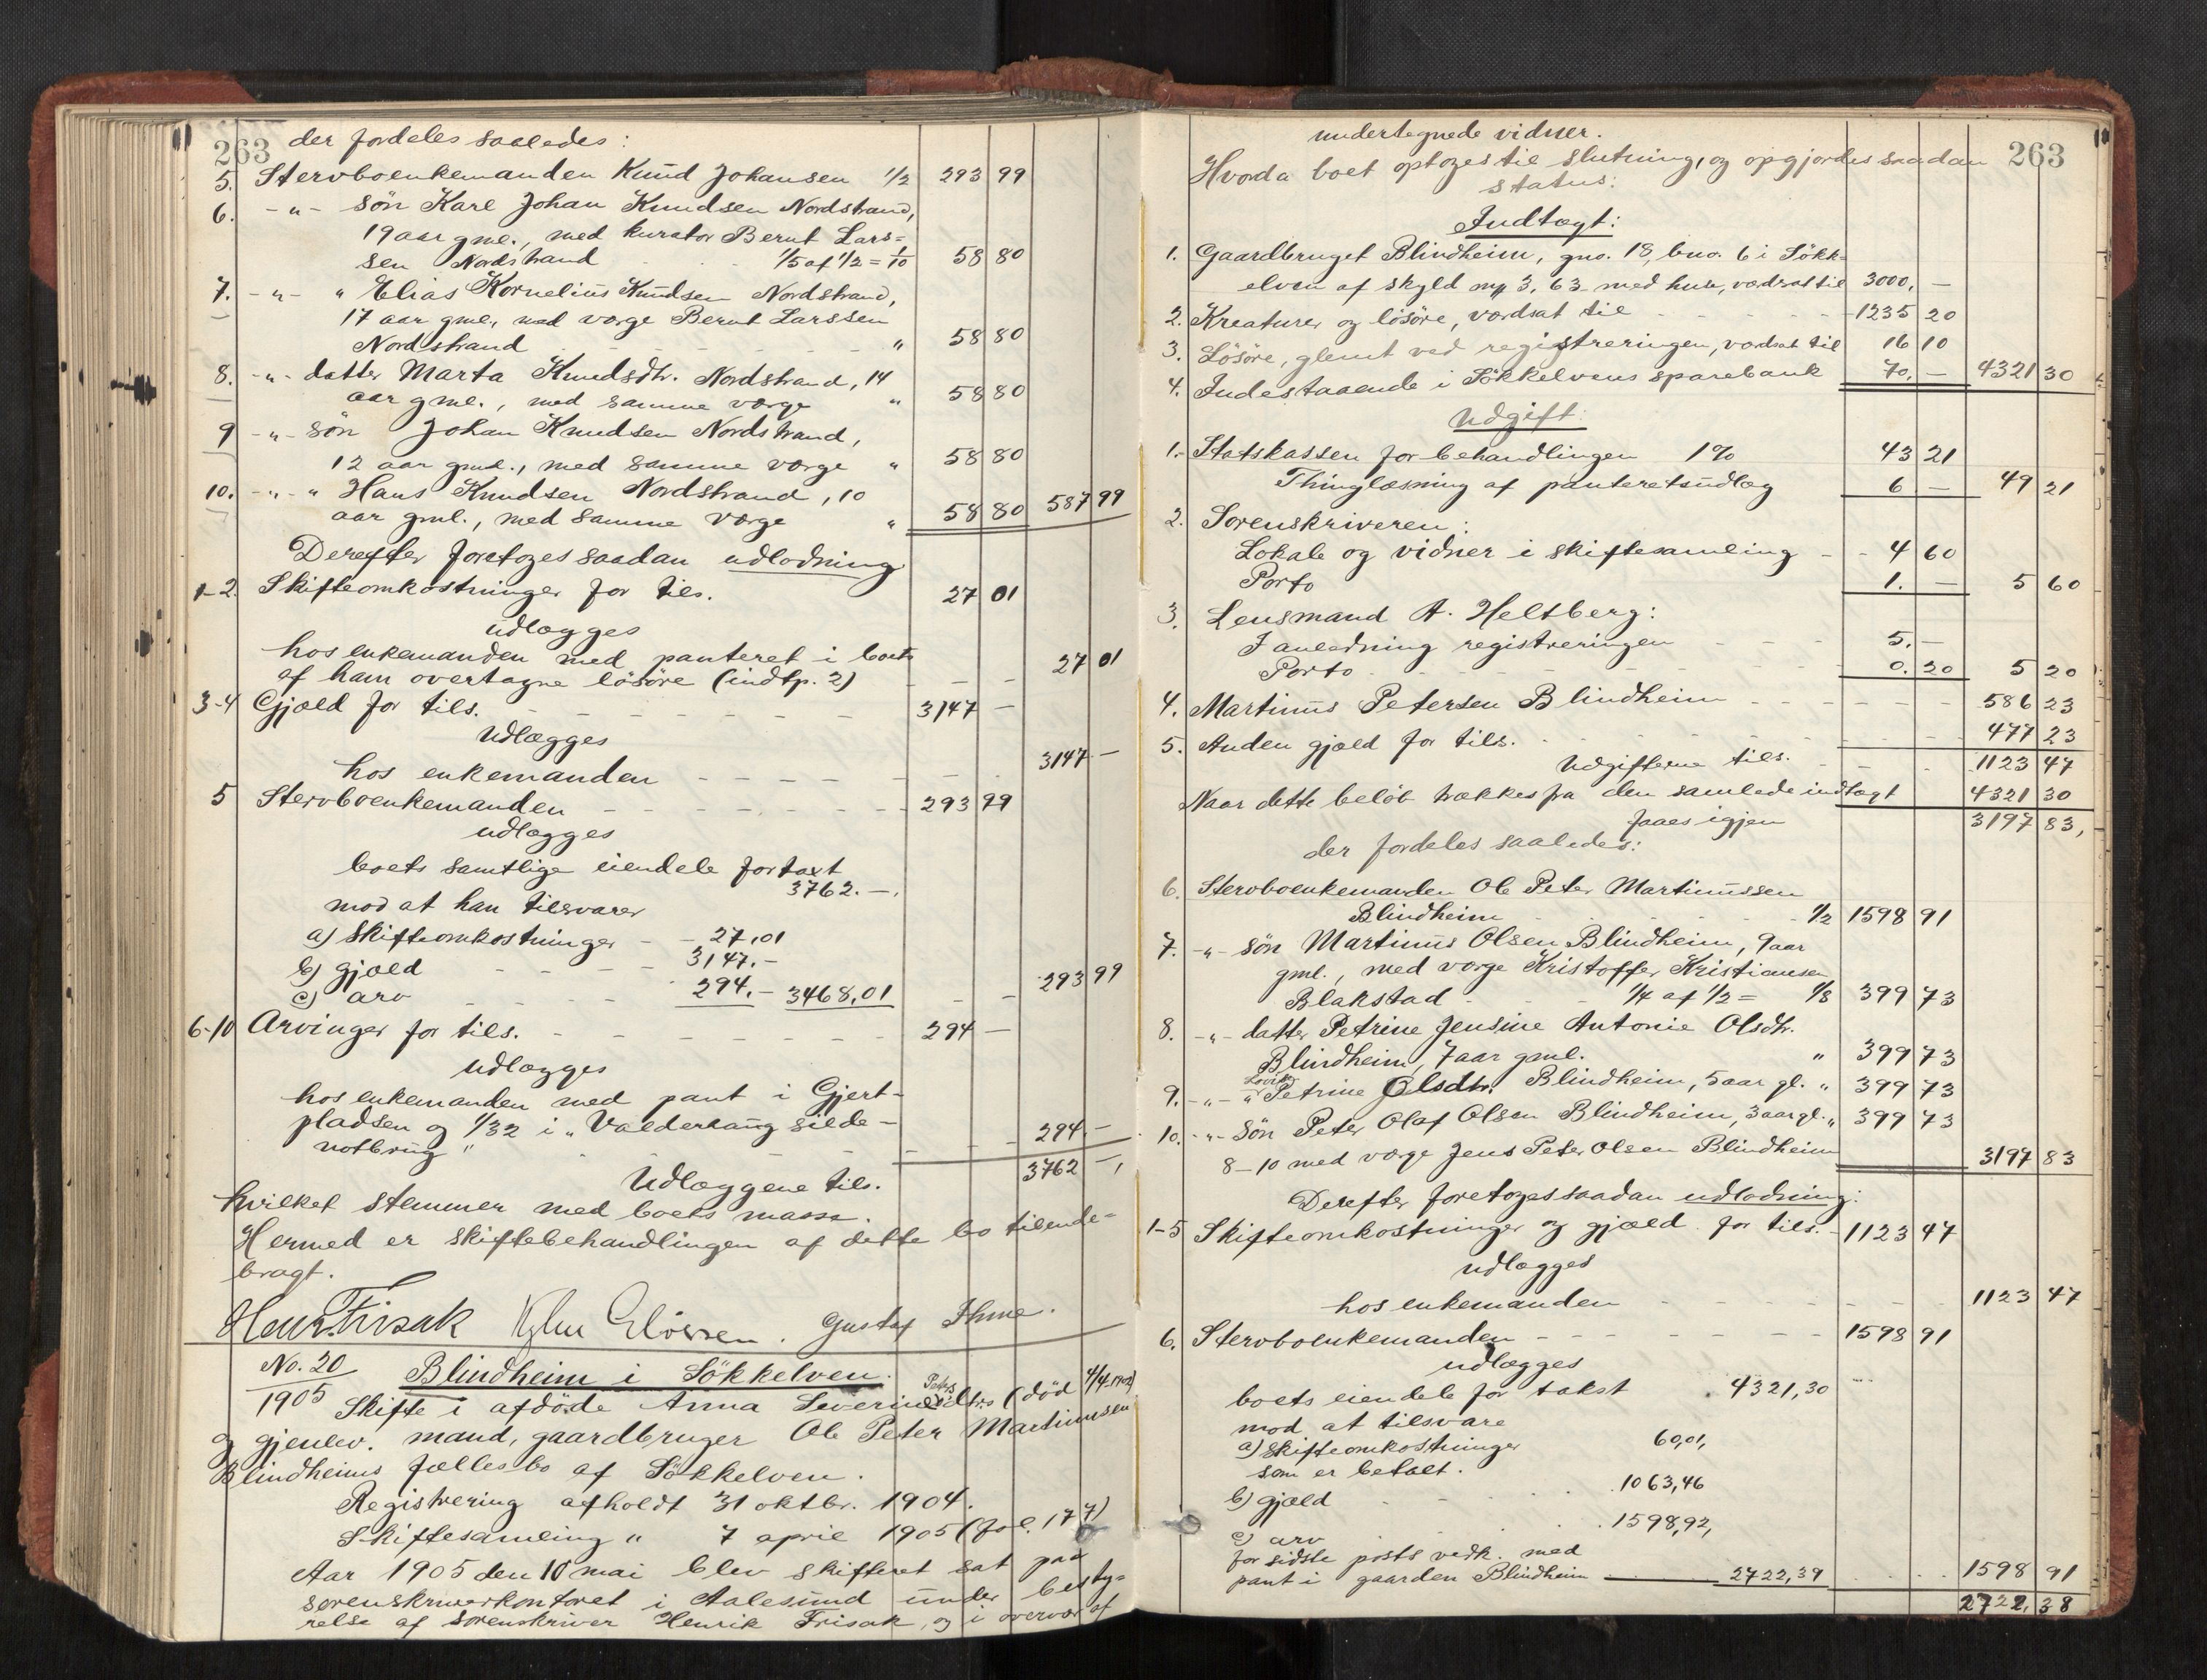 263 der fordeles saaledes:
5. Stervboenkemanden Knud Johansen 1/2 293 99
6. -"- søn Karl Johan Knudsen Nordstrand,
19 aar gml., med kurator Bernt Lars=
sen Nordstrand 1/5 af 1/2 = 1/10 58 80
7. -"- " Elias Kornelius Knudsen Nordstrand,
17 aar gml., med værge Bernt Larssen
Nordstrand " 58 80
8. -"- datter Marta Knudsdtr. Nordstrand, 14
aar gml., med samme værge " 58 80
9 -"- søn Johan Knudsen Nordstrand,
12 aar gml., med samme værge " 58 80
10. -"- " Hans Knudsen Nordstrand, 10
aar gml., med samme værge " 58 80 587 99
Derefter foretoges saadan udlodning
1-2 Skifteomkostninger for tils. 27 01
udlægges
hos enkemanden med panteret i boets
af ham overtagne løsøre (indtp. 2) 27 01
3-4 Gjæld for tils. 3147 -
Udlægges
hos enkemanden 3147 -
5 Stervboenkemanden 293 99
udlægges
boets samtlige eiendele for taxt
3762.-.
mod at han tilsvarer
a) Skifteomkostninger 27,01
b) gjæld 3147.-
c) arv 294.- 3468,01 293 99
6-10 Arvinger for tils. 294 -
udlægges
hos enkemanden med pant i Gjert-
pladsen og 1/32 i "Valderhaug silde-
notbrug" 294.-
Udlæggene tils. 3762 -,
hvilket stemmer med boets masse.
Hermed er skiftebehandlingen af dette bo tilende=
bragt.
Henr. Frisak Gustaf Ihme.
No. 20 Blindheim i Søkkelven.
1905 Skifte i afdøde Anna Severine Petersdtrs (død 4/4 1902)
og gjenlev. mand, gaardbruger Ole Peter Martinussen
Blindheims fællesbo af Søkkelven.
Registrering afholdt 31 oktbr. 1904.
Skiftesamling " 7 april 1905 (fol. 177)
Aar 1905 den 10 mai blev skifteret sat paa
sorenskriverkontoret i Aalesund under besty=
relse af sorenskriver Henrik Frisak, og i overvær af
undertegnede vidner. 263
Hvorda boet optoges til slutning, og opgjordes saadan
status:
Indtægt:
1. Gaardbruget Blindheim, gno. 18, bno. 6 i Søkk-
elven af skyld mk 3,63 med huse, værdsat til 3000, -
2. Kreaturer og løsøre, værdsat til 1235 20
3. Løsøre, glemt ved registreringen, værdsat til 16 10
4. Indestaaende i Søkkelvens sparebank 70, - 4321 30
Udgift:
1. Statskassen for behandlingen 1% 43 21
Thinglæsning af panteretsudlæg 6 - 49 21
2. Sorenskriveren:
Lokale og vidner i skiftesamling 4 60
Porto 1. - 5 60
3. Lensmand A. Heltberg:
I anledning registreringen 5. -
Porto 0. 20 5 20
4. Martinus Petersen Blindheim 586 23
5. Anden gjæld for tils. 477 23
Udgifterne tils. 1123 47
Naar dette beløb trækkes fra den samlede indtægt 4321 30
faaes igjen 3197 83,
der fordeles saaledes:
6. Stervboenkemanden Ole Peter Martinussen
Blindheim 1/2 1598 91
7. -"- søn Martinus Olsen Blindheim, 9 aar
gml., med værge Kristoffer Kristiansen
Blakstad 1/4 af 1/2 = 1/8 399 73
8. -"- datter Petrine Jensine Antonie Olsdtr.
Blindheim, 7 aar gml. " 399 73
9. -"- " Lovise Petrine Olsdtr. Blindheim, 5 aar gl. " 399 73
10. -"- søn Peter Olaf Olsen Blindheim, 3 aar gl. " 399 73
8-10 med værge Jens Peter Olsen Blindheim 3197 83
Derefter foretoges saadan udlodning:
1-5 Skifteomkostninger og gjæld for tils. 1123 47
udlægges
hos enkemanden 1123 47
6. Stervboenkemanden 1598 91
udlægges
boets eiendele for takst 4321,30
mod at tilsvare
a) skifteomkostninger 60,01,
som er betalt.
b) gjæld 1063,46
c) arv 1598,92,
for sidste posts vedk. med
pant i gaarden Blindheim 2722,39 1598 91
2722, 38